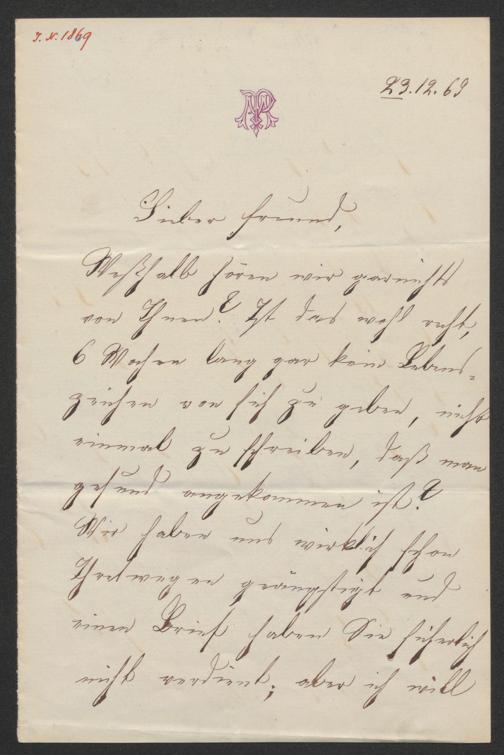 J. N. 1869
23.12.69
Lieber Freund,
Weßhalb hören wir garnichts
von Ihnen? Ist das wohl recht,
6 Wochen lang gar kein Lebens-
zeichen von sich zu geben, nicht
einmal zu schreiben, daß man
gesund angekommen ist?
Wir haben uns wirklich schon
Ihretwegen geängstigt und
einen Brief haben Sie sicherlich
nicht verdient; aber ich will